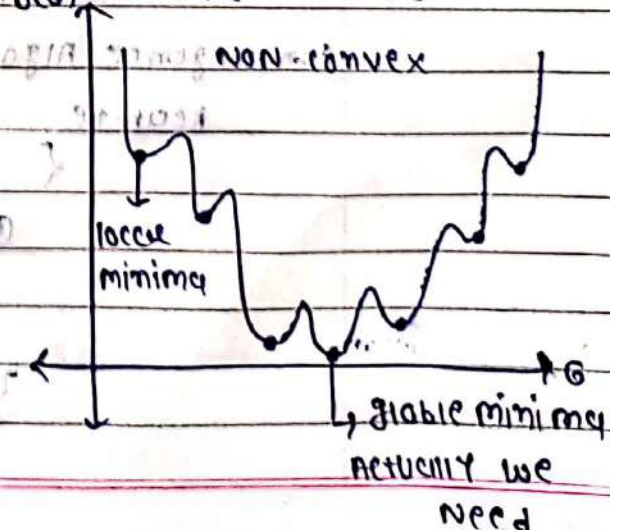 NON-convex
locce
minima
θ
glable minima
Actually we
Need